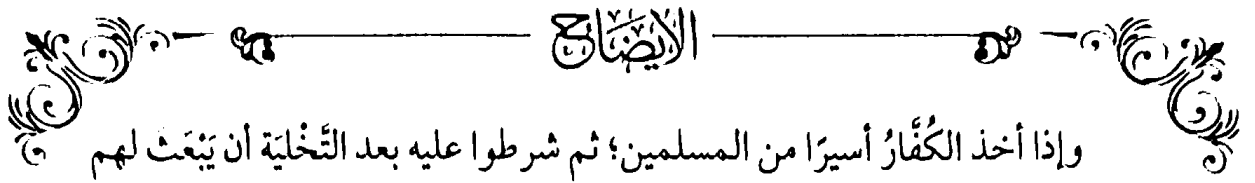 الإيضاح
وإذا أخذ الكُفَّارُ أسيرًا من المسلمين؛ ثم شرطوا عليه بعد التَّخْلِيَة أن يَبْعَث لهم